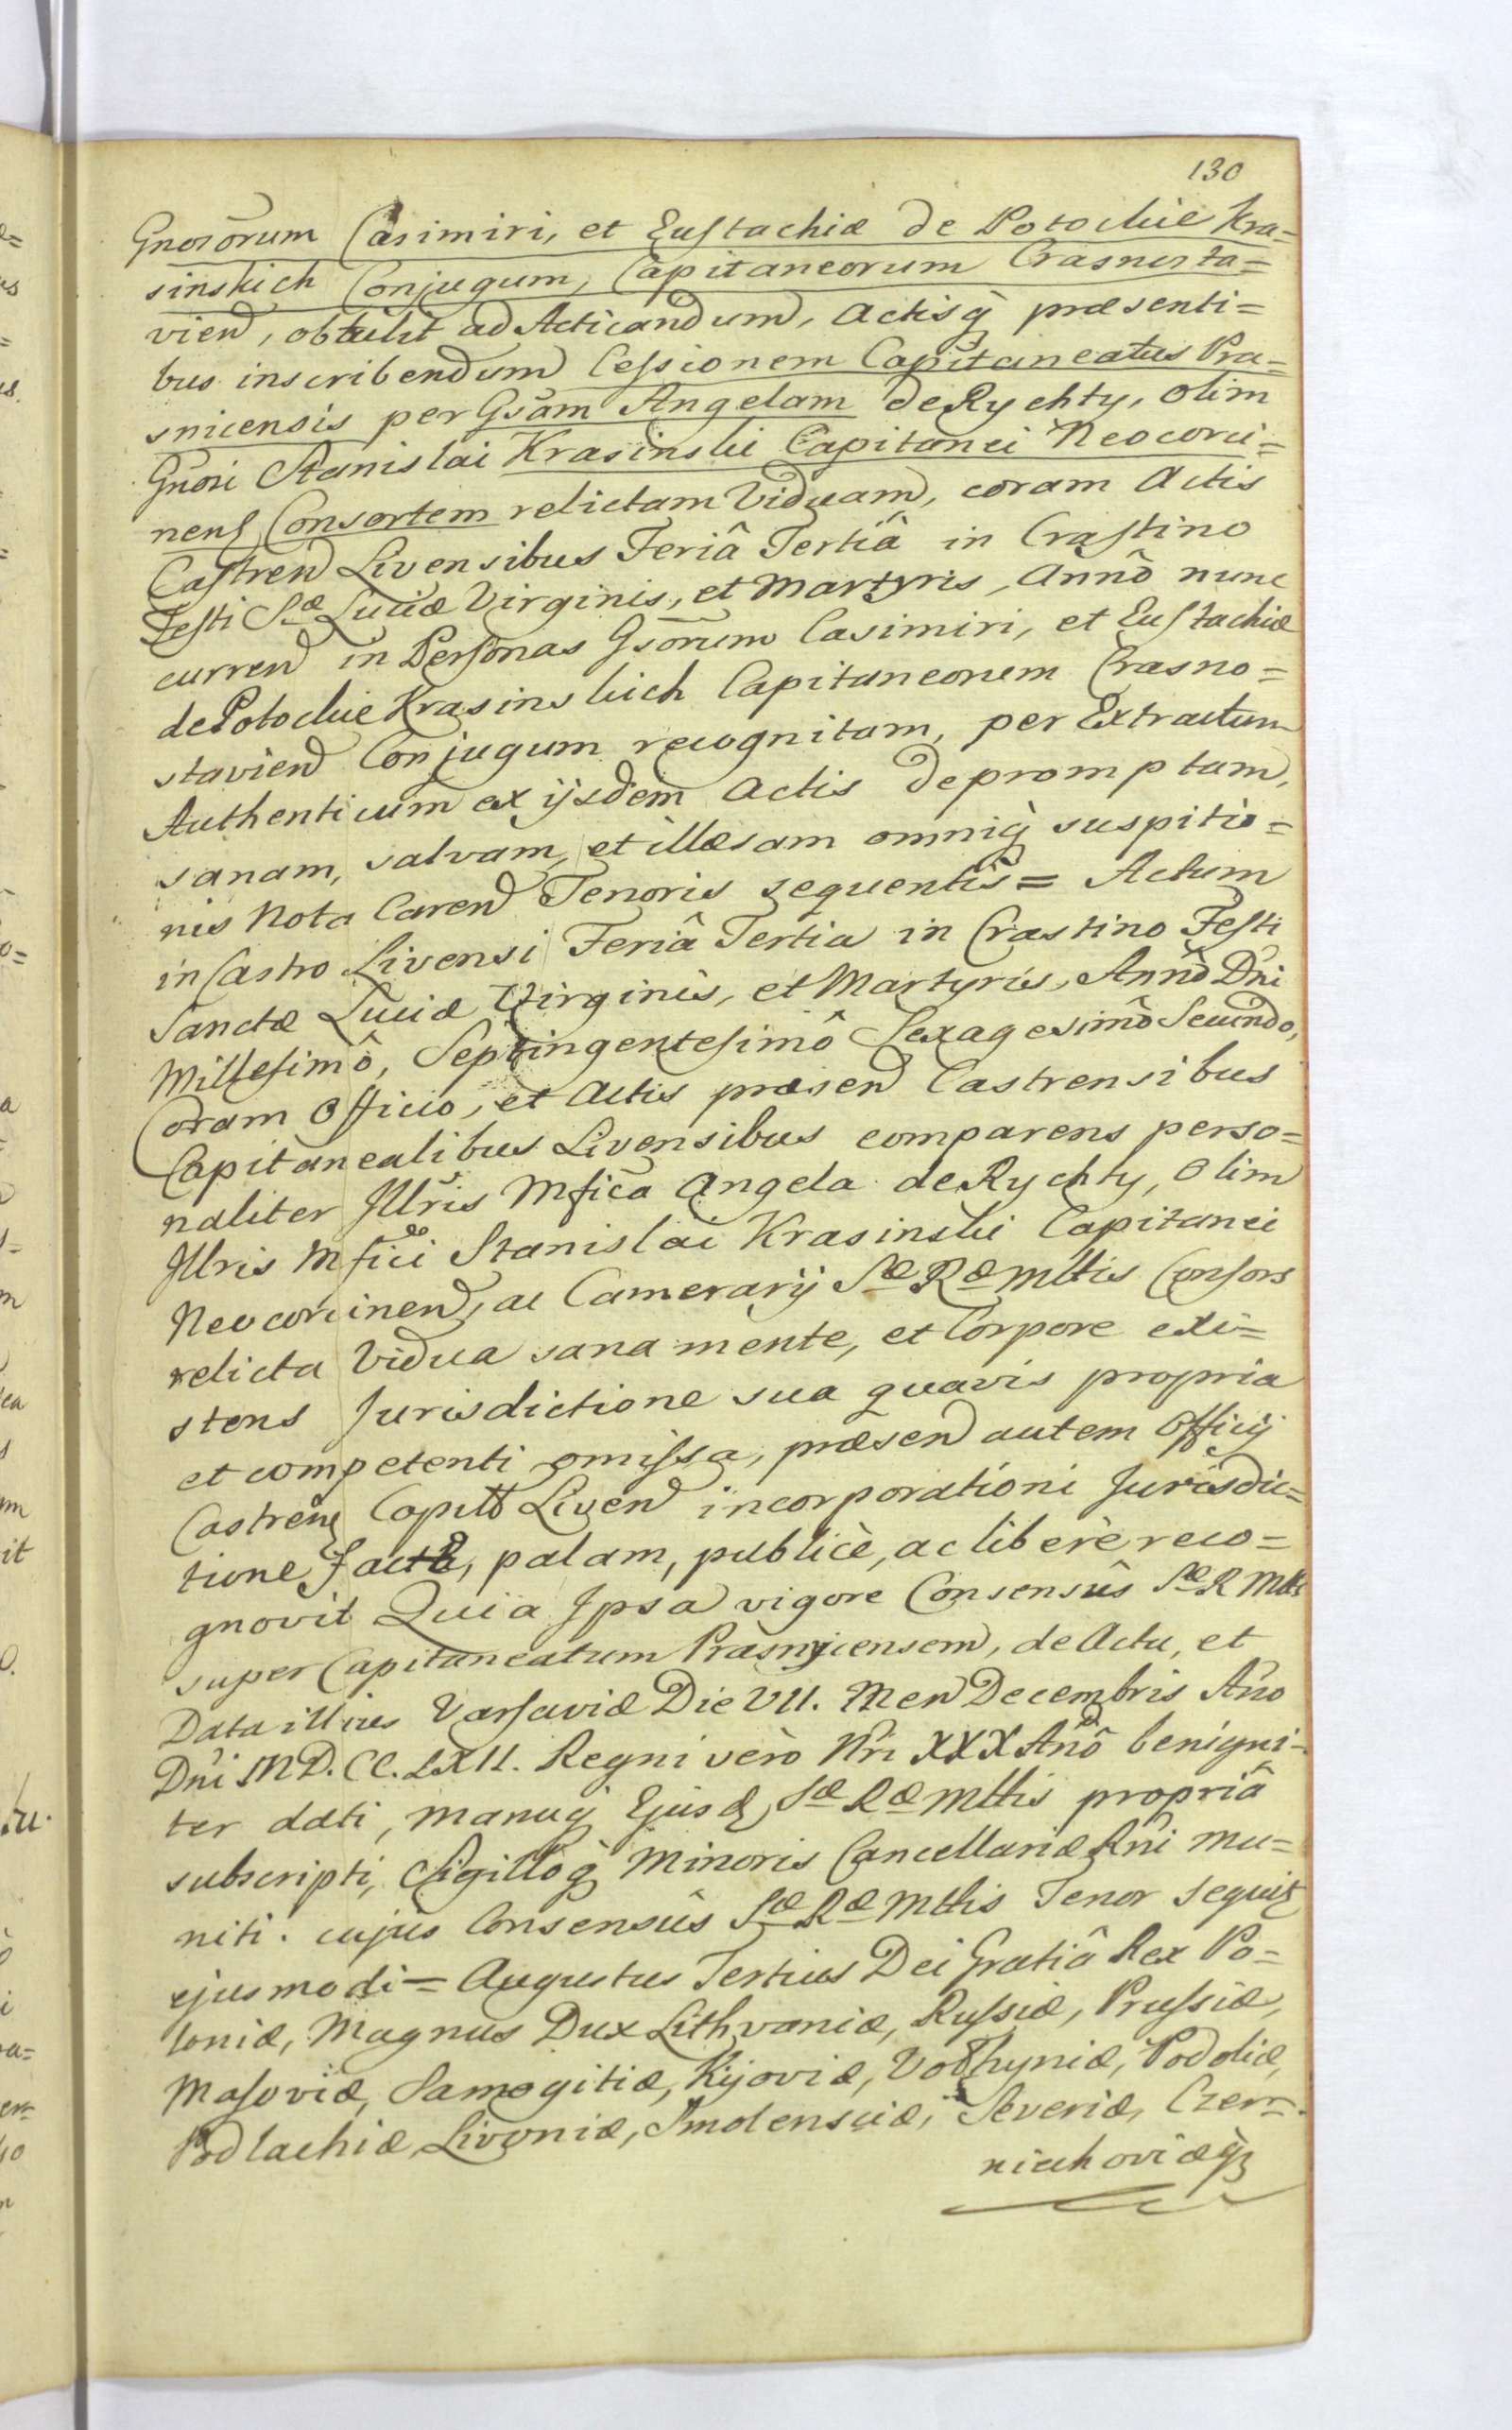 130
Gnosorum Casimiri, et Eustachiæ de Potockie Kra=
sinskich Conjugum, Capitaneorum Crasnosta=
vien, obtulit ad Acticandum, Actisq̀ præsenti=
bus inscribendum Cessionem Capitaneatus Pra=
snicensis per Gsam Angelam de Rychty, olim
Gnosi Stanislai Krasinski Capitanei Neocorci=
nens Consortem relictam Viduam, coram Actis
Castren Livensibus Feriâ Tertiâ in Crastino
Festi Sæ Luciæ Virginis, et Martyris, Annô nunc
curren in Personas Gsorum Casimiri, et Eustachiæ
de Potockie Krasinskich Capitaneorum Crasno=
stavien Conjugum recognitam, per Extractum
Authenticum ex ijsdem Actis depromptam,
sanam, salvam, et illæsam omniq̀ suspitio=
nis nota Caren Tenoris sequentis = Actum
in Castro Livensi Feriâ Tertia in Crastino Festi
Sanctæ Luciæ Virginis, et Martyris, Annô Dni
Millesimô, Septingentesimô Sexagesimô Secundo,
Coram Officio, et Actis præsen Castrensibus
Capitanealibus Livensibus comparens perso=
naliter Illris Mfica Angela de Rychty, Olim
Illris Mfici Stanislai Krasinski Capitanei
Neocorcinen, ac Camerarij Sæ Ræ Mttis Consors
relicta Vidua sana mente, et Corpore exi=
stens Jurisdictione sua quavis propria
et competenti omissa, præsen autem Officij
Castrens Capitt Liven incorporationi Jurisdic=
tione facta, palam, publicè, ac liberè reco=
gnovit Quia Ipsa vigore Consensûs Sæ R Mttis
super Capitaneatum Prasnicensem, de Actu, et
Data illius Varsaviæ Die VII. Men Decembris Año
Dni MD.CC.LXII. Regni verò Nri XXX Anô benigni=
ter dati, manuq̀ Ejusd, Sæ Ræ Mttis propriâ
subscripti, Sigilloq̀ Minoris Cancellariæ Rni mu=
niti. cujus Consensûs Sæ Ræ Mttis Tenor sequit
ejusmodi = Augustus Tertius Dei Gratiâ Rex Po=
loniæ, Magnus Dux Lithvaniæ, Russiæ, Prussiæ,
Masoviæ, Samogitiæ, Kijoviæ, Volhyniæ, Podoliæ,
Podlachiæ, Livoniæ, Smolensciæ, Severiæ, Czer=
niechoviæq̀